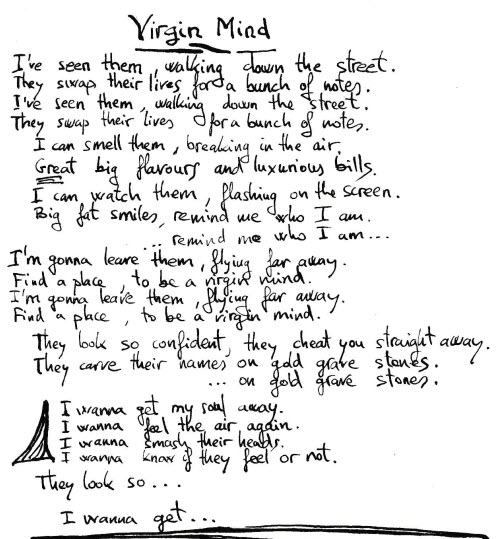 Virgin Mind
I've seen them, walking down the street.
They swap their lives for a bunch of notes.
I've seen them, walking down the street.
They swap their lives for a bunch of notes.
I can smell them, breaking in the air.
Great big flavours and luxurious bills.
I can watch them, flashing on the screen.
Big fat smiles, remind me who I am.
... remind me who I am...
I'm gonna leave them, flying far away.
Find a place, to be a virgin mind.
I'm gonna leave them, flying far away.
Find a place, to be a virgin mind.
They look so confident, they cheat you straight away.
They carve their names on gold grave stones.
... on gold grave stones.
I wanna get my soul away.
I wanna feel the air again.
I wanna smash their heads.
I wanna know if they feel or not.
They look so...
I wanna get...